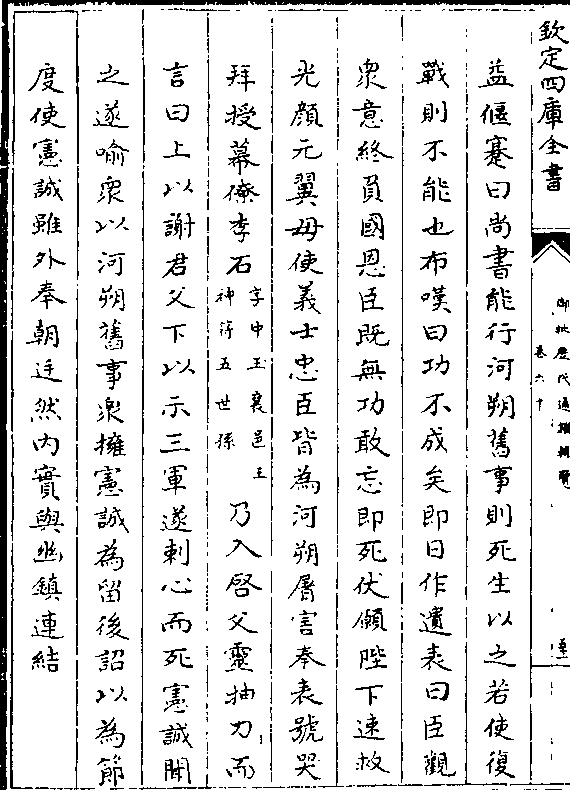 欽定四庫全書
御批歷代通鑑輯覽
卷六十
益偃蹇曰尚書能行河朔舊事則死生以之若使復
戰則不能也布嘆曰功不成矣即日作遺表曰臣觀
衆意終負國恩臣既無功敢忘即死伏願陛下速救
光顔元翼毋使義士忠臣皆為河朔屠害奉表號哭
拜授幕僚李石
字中玉襄邑王
神符五世孫
乃入啓父靈抽刀而
言曰上以謝君父下以示三軍遂刺心而死憲誠聞
之遂喻衆以河朔舊事衆擁憲誠為留後詔以為節
度使憲誠雖外奉朝廷然内實與幽鎮連結